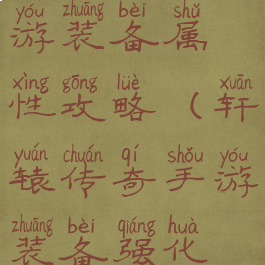 yóu zhuāng bèi shǔ
游装备属
xìng gōng lüè xuān
性攻略（轩
yuán chuán qí shǒu yóu
辕传奇手游
zhuāng bèi qiáng huà
装备强化